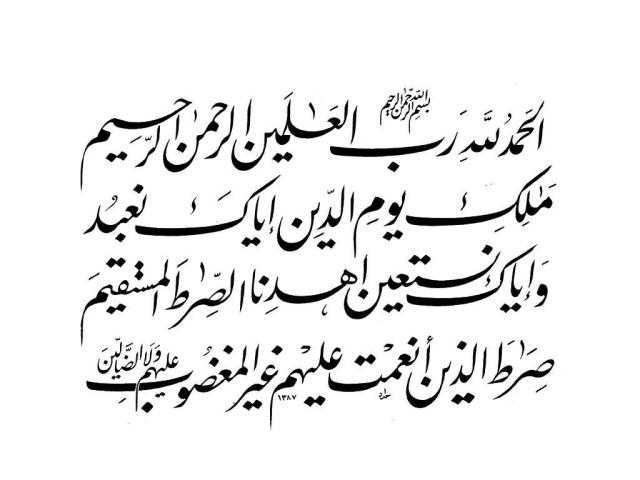 بسم الله الرحمن الرحيم
الحَمدُ للهِ رَب العَٰلَمين الرحمٰن الرَّحيم
مَٰلِكِ يومِ الدِّين إياكَ نعبُد
وَإياك نستعين اهدِنا الصِّرٰطَ المستقيمَ
صِرَٰطَ الذين أنعمت عليهم غير المغضُوب
عليهم وَلَا الضَّالّينَ
١٣٨٧